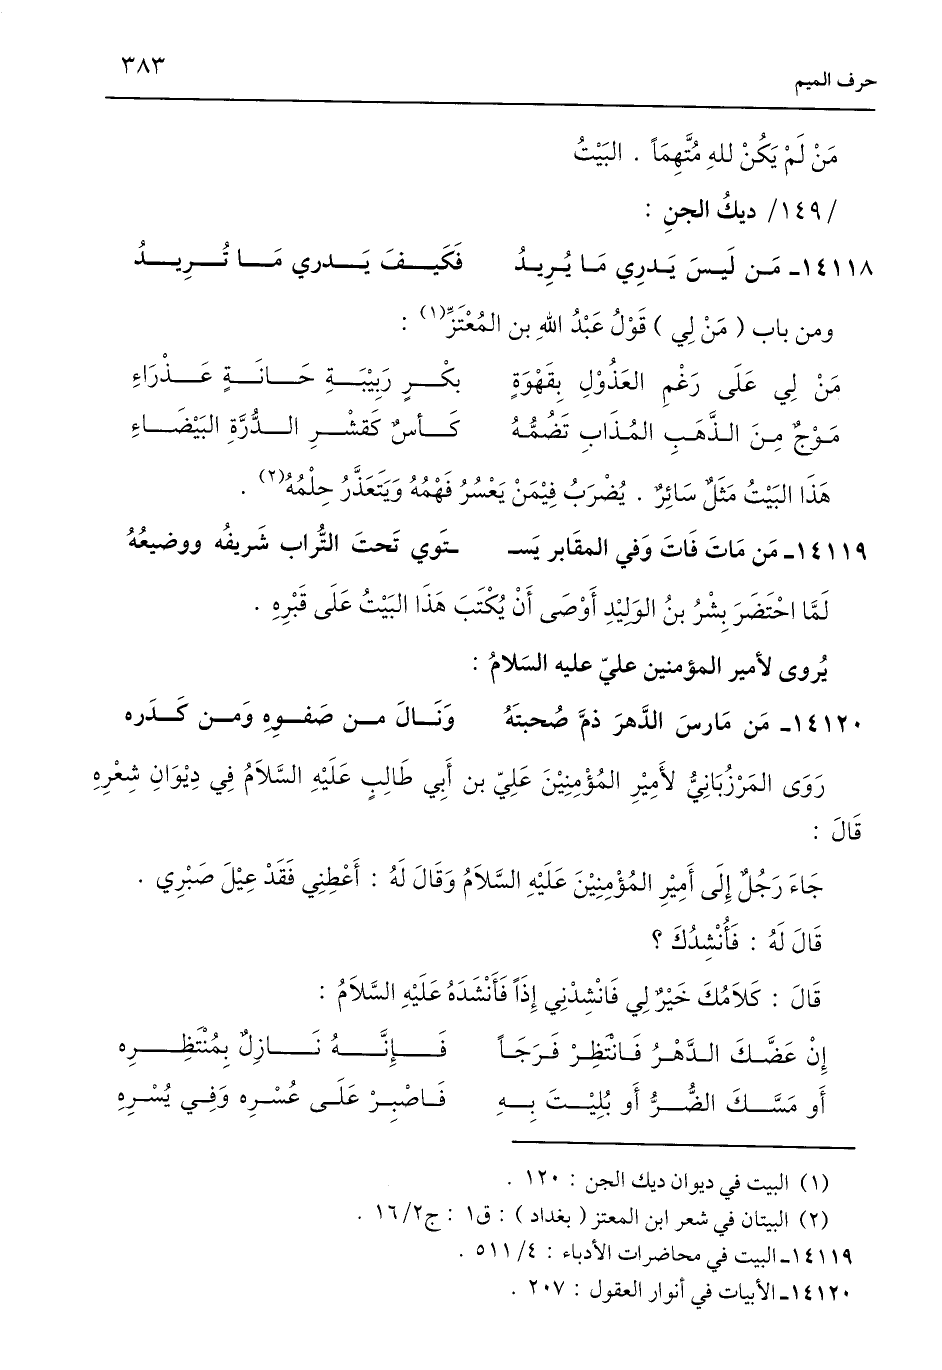 ٣٨٣
حرف الميم
مَنْ لَمْ يَكُنْ للهِ مُتَّهِمَاً . البَيْتُ
/١٤٩/ ديكُ الجنِ :
١٤١١٨ـ مَن لَيسَ يَدرِي مَا يُرِيدُ فَكَيـــفَ يَـــدري مَـــا تُـــرِيـــدُ
ومن باب ( مَنْ لِي ) قَوْلُ عَبْدُ اللهِ بن المُعْتَزِّ(١) :
مَنْ لِي عَلَى رَغْمِ العَذُوْلِ بِقَهْوَةٍ بكْـــرٍ رَبِيْبَـــةِ حَـــانَـــةٍ عَـــذْرَاءِ
مَوْجٌ مِنَ الذَّهَبِ المُذَابِ تَضُمُّهُ كَـــأسٌ كَقشْـــرِ الـــدُّرَّةِ البَيْضَـــاءِ
هَذَا البَيْتُ مَثَلٌ سَائِرٌ . يُضْرَبُ فِيْمَنْ يَعْسُرُ فَهْمُهُ وَيَتَعَذَّرُ حِلْمُهُ(٢) .
١٤١١٩ـ مَن مَاتَ فَاتَ وَفي المقابر يَســـ ـتوي تَحتَ التُّراب شَريفُه ووضيعُهُ
لَمَّا احْتَضَرَ بِشْرُ بنُ الوَلِيْدِ أَوْصَى أَنْ يُكْتَبَ هَذَا البَيْتُ عَلَى قَبْرِهِ .
يُروى لأمير المؤمنين عليّ عليه السَلامُ :
١٤١٢٠ـ مَن مَارسَ الدَّهرَ ذمَّ صُحبتَهُ وَنَـــالَ مـــن صَفـــوِه وَمـــن كَـــدَره
رَوَى المَرْزُبَانِيُّ لأَمِيْرِ المُؤْمِنِيْنَ عَلِيّ بن أَبِي طَالِبٍ عَلَيْهِ السَّلاَمُ فِي دِيْوَانِ شِعْرِهِ
قَالَ :
جَاءَ رَجُلٌ إِلَى أَمِيْرِ المُؤْمِنِيْنَ عَلَيْهِ السَّلاَمُ وَقَالَ لَهُ : أَعْطِنِي فَقَدْ عِيْلَ صَبْرِي .
قَالَ لَهُ : فَأُنْشِدُكَ ؟
قَالَ : كَلاَمُكَ خَيْرٌ لِي فَانْشِدْنِي إِذَاً فَأَنْشَدَهُ عَلَيْهِ السَّلاَمُ :
إِنْ عَضَّكَ الدَّهْرُ فَانْتَظِرْ فَرَجَاً فَـــإِنَّـــهُ نَـــازِلٌ بِمُنْتَظِـــرِه
أَو مَسَّـــكَ الضُّـــرُّ أَو بُلِيْـــتَ بِـــهِ فَـاصْبِـرْ عَلَـى عُسْـرِه وَفِـي يُسْـرِهِ
(١) البيت في ديوان ديك الجن : ١٢٠ .
(٢) البيتان في شعر ابن المعتز ( بغداد ) : ق١ : ج١٦/٢ .
١٤١١٩ـ البيت في محاضرات الأدباء : ٥١١/٤ .
١٤١٢٠ـ الأبيات في أنوار العقول : ٢٠٧ .